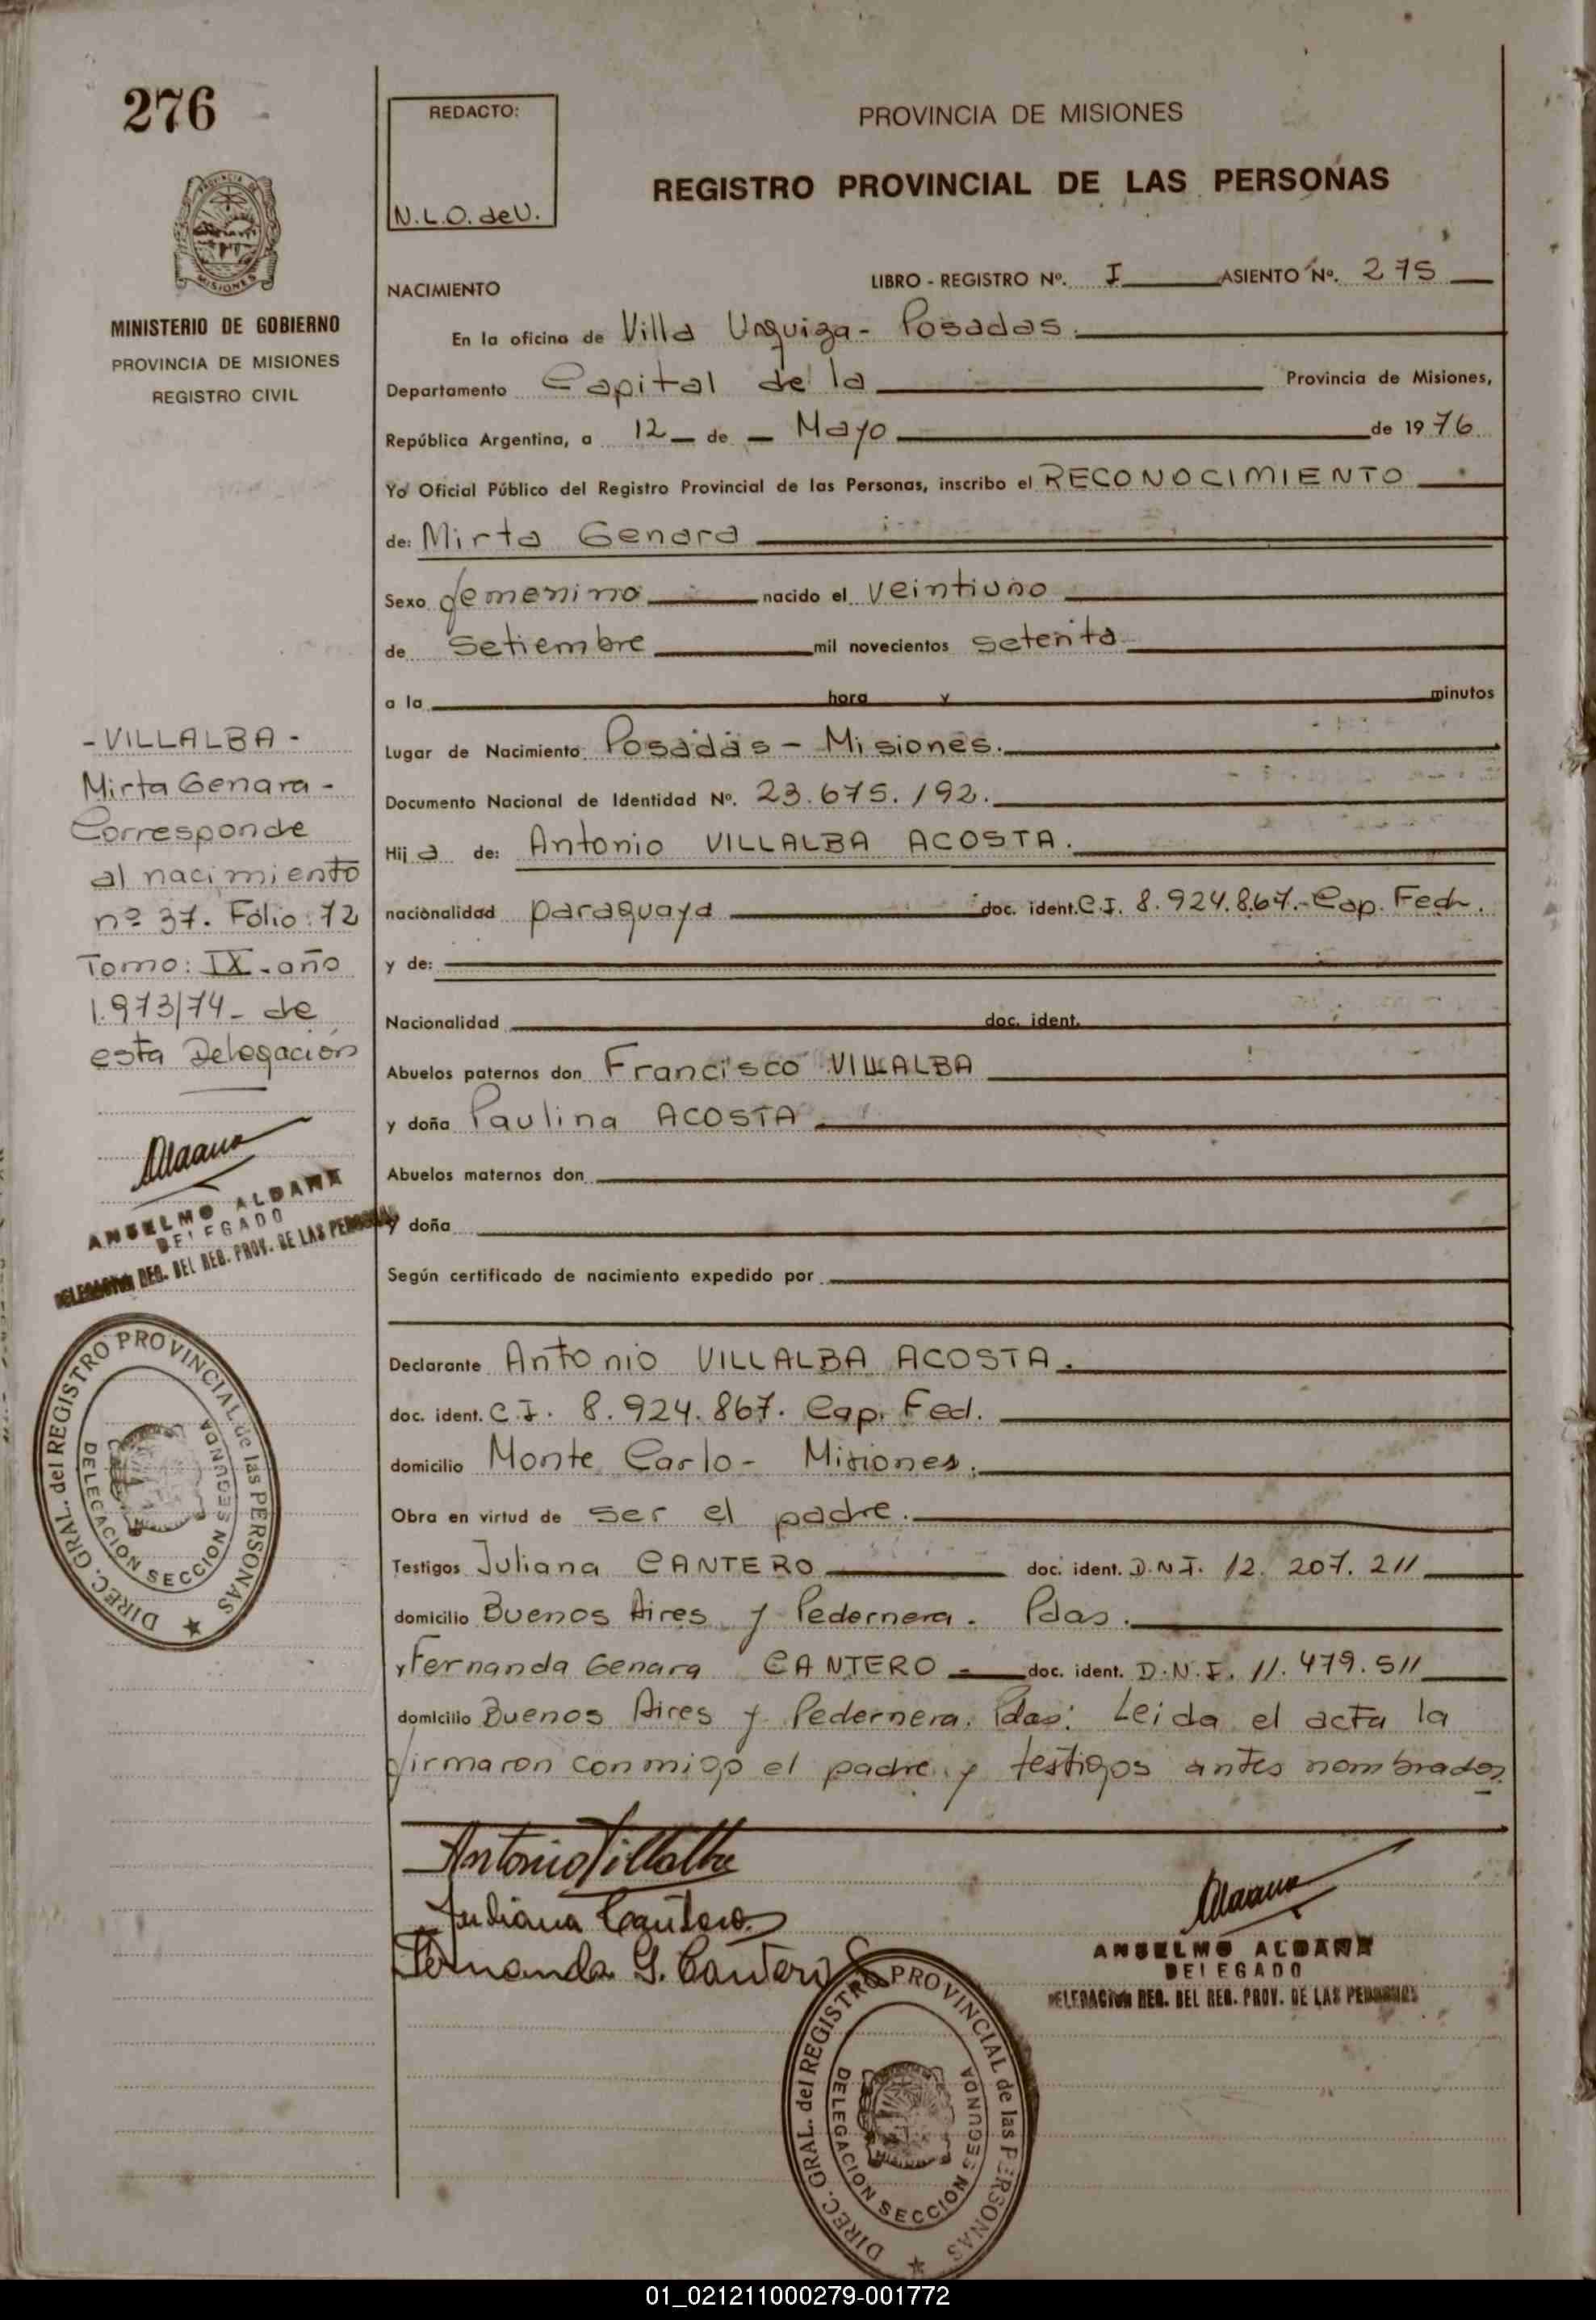 276
PROVINCIA DE MISIONES
MINISTERIO DE GOBIERNO
PROVINCIA DE MISIONES
REGISTRO CIVIL
- VILLALBA -
Mirta Genara -
Corresponde
al nacimiento
nº 37. Folio: 72
Tomo: IX - año
1.973/74 - de
esta Delegación
ANSELMO ALDANA
DELEGADO
DELEGACION REG. DEL REG. PROV. DE LAS PERSONAS
DIREC. GRAL. del REGISTRO PROVINCIAL de las PERSONAS
DELEGACION SECCION SEGUNDA
REDACTO:
N.L.O. de U.
PROVINCIA DE MISIONES
REGISTRO PROVINCIAL DE LAS PERSONAS
NACIMIENTO LIBRO - REGISTRO Nº. I ASIENTO Nº. 275
En la oficina de Villa Urquiza - Posadas.
Departamento Capital de la Provincia de Misiones,
República Argentina, a 12 de - Mayo de 1976
Yo Oficial Público del Registro Provincial de las Personas, inscribo el RECONOCIMIENTO
de: Mirta Genara
Sexo femenino nacido el veintiuno
de Setiembre mil novecientos setenta
a la hora y minutos
Lugar de Nacimiento Posadas - Misiones.
Documento Nacional de Identidad Nº. 23.675.192.
Hija de: Antonio VILLALBA ACOSTA.
nacionalidad paraguaya doc. ident. C.I. 8.924.867.- Cap. Fed.
y de:
Nacionalidad doc. ident.
Abuelos paternos don Francisco VILLALBA
y doña Paulina ACOSTA
Abuelos maternos don
y doña
Según certificado de nacimiento expedido por
Declarante Antonio VILLALBA ACOSTA.
doc. ident. C.I. 8.924.867. Cap. Fed.
domicilio Monte Carlo - Misiones.
Obra en virtud de ser el padre.
Testigos Juliana CANTERO doc. ident. D.N.I. 12.207.211
domicilio Buenos Aires y Pedernera. Pdas.
y Fernanda Genara CANTERO - doc. ident. D.N.I. 11.479.511
domicilio Buenos Aires y Pedernera. Pdas: Leida el acta la
firmaron conmigo el padre y testigos antes nombrados
Antonio Villalba
Juliana Cantero
Fernanda G. Cantero
ANSELMO ALDANA
DELEGADO
DELEGACION REG. DEL REG. PROV. DE LAS PERSONAS
DIREC. GRAL. del REGISTRO PROVINCIAL de las PERSONAS
DELEGACION SECCION SEGUNDA
01_021211000279-001772